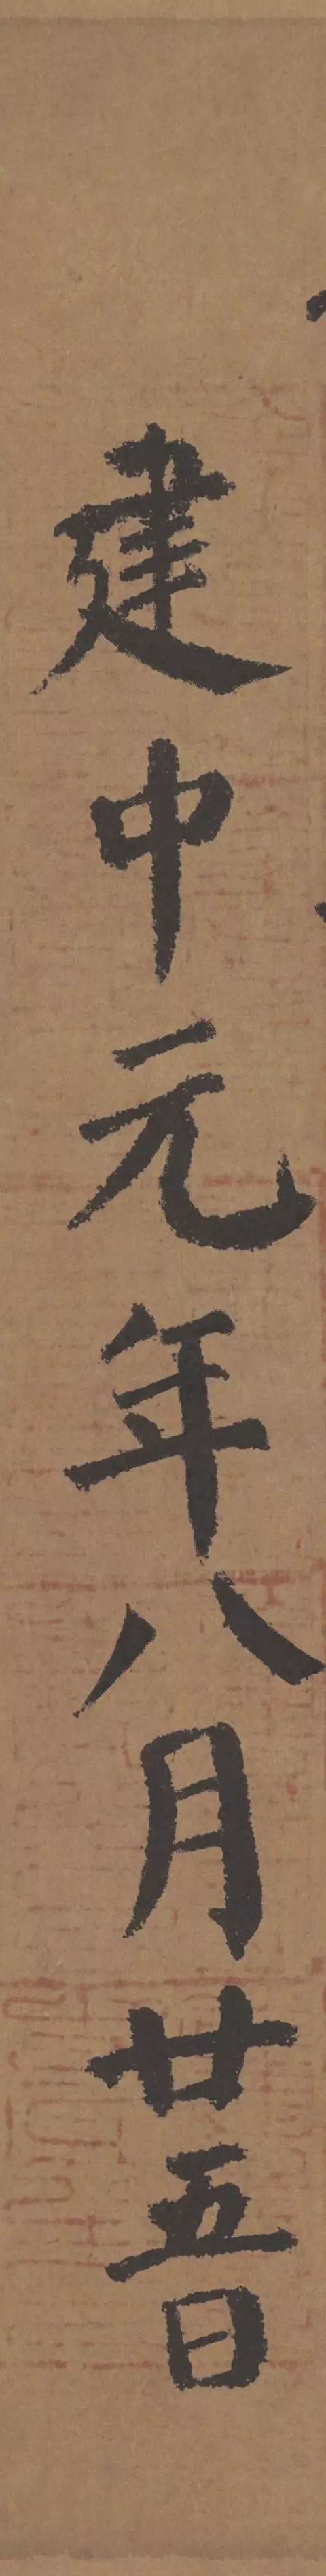 建中元年八月廿五日